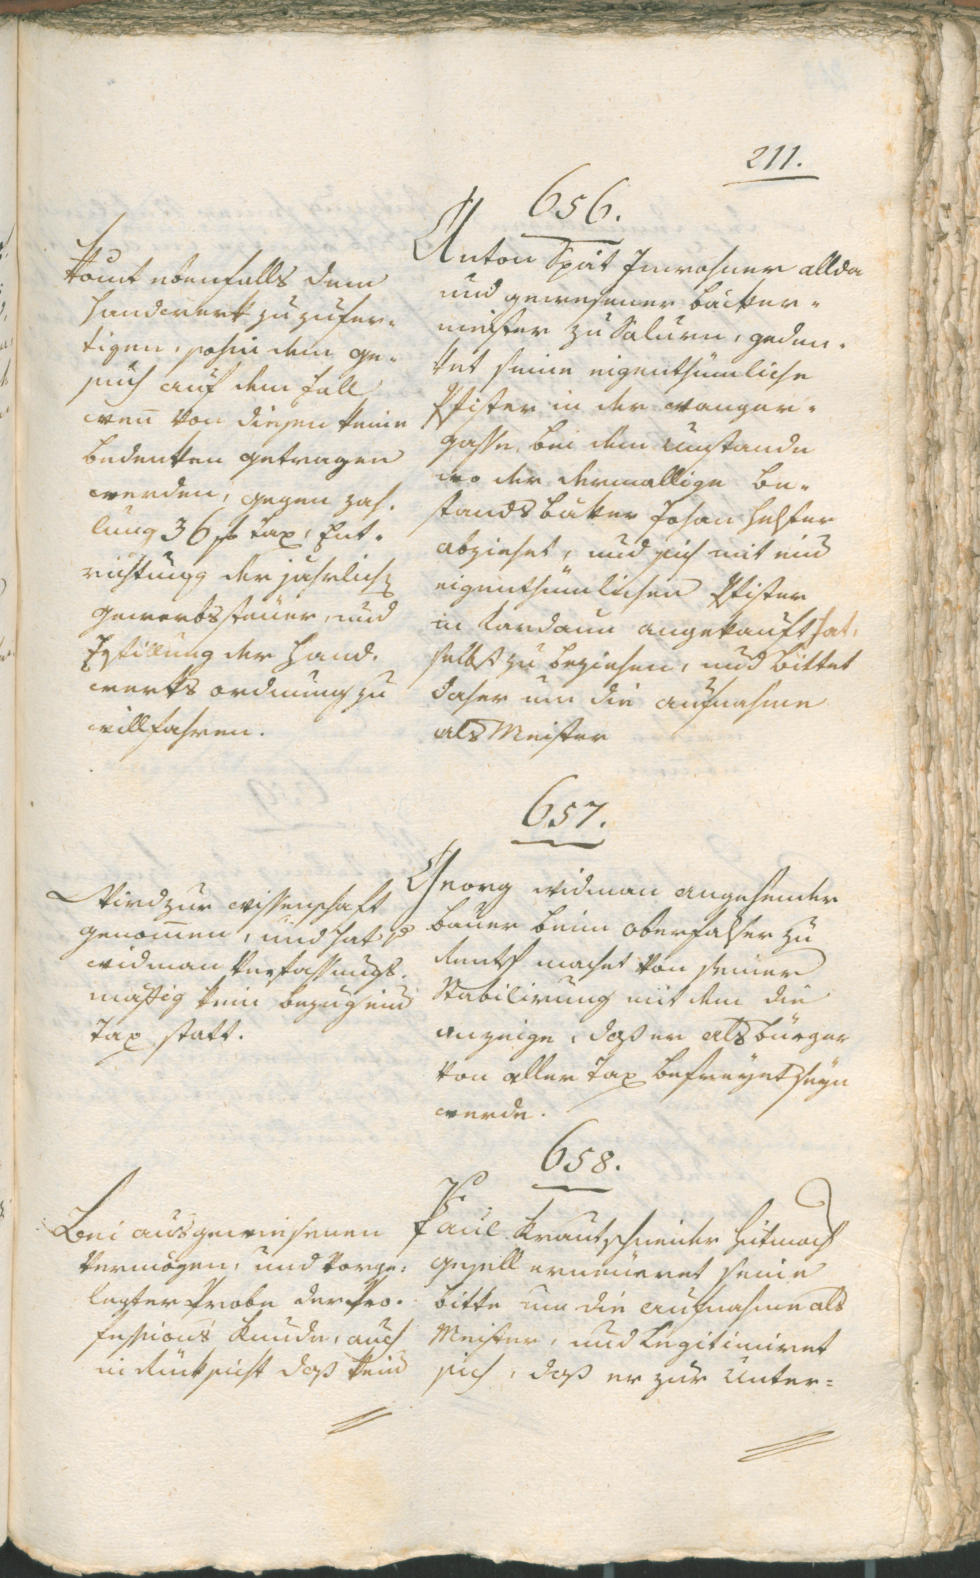 211.
656.
Anton Spät Inwohner allda
und gewesener Bäcker-
meister zu Salurn, geden-
ket seine eigenthümliche
Pfister in der Wanger-
gasse, bei dem Umstande
wo der dermallige Be-
standsbäker Johan
abziehet, und sich mit eine
eigenthümlichen Pfister
in Kardaun angekauft hat,
selbst zu beziehen, und bittet
daher um die Aufnahme
als Meister
Komt ebenfalls dem
Handwerk zuzufer-
tigen, sohin dem Ge-
such auf dem Fall
wen von diesen keine
Bedenken getragen
werden, gegen Zah-
lung 36 f Tax, Ent-
richtung der jährlich
Gewerbssteuer, und
Erfüllung der Hand-
werks ordnung zu
willfahren.
657.
Georg Widman angehender
Bauer beim Oberfalser zu
machet von seiner
Stabilirung mit dem die
Anzeige, daß er als Bürger
von aller Tax befreyet seyn
werde.
Wird zur Wissenschaft
genommen, und hat
Widman verfassungs-
mäßig kein Bezug eine
Tax statt.
658.
Paul Krautschneider Hutmach
gesell erneueret seine
Bitte um die Aufnahme als
Meister, und Legitimiret
sich, daß er zur Unter-
Bei ausgewiesenen
Vermögen, und vorge-
legter Probe der Pro-
fessions Kunde, auch
in Rücksicht daß kein